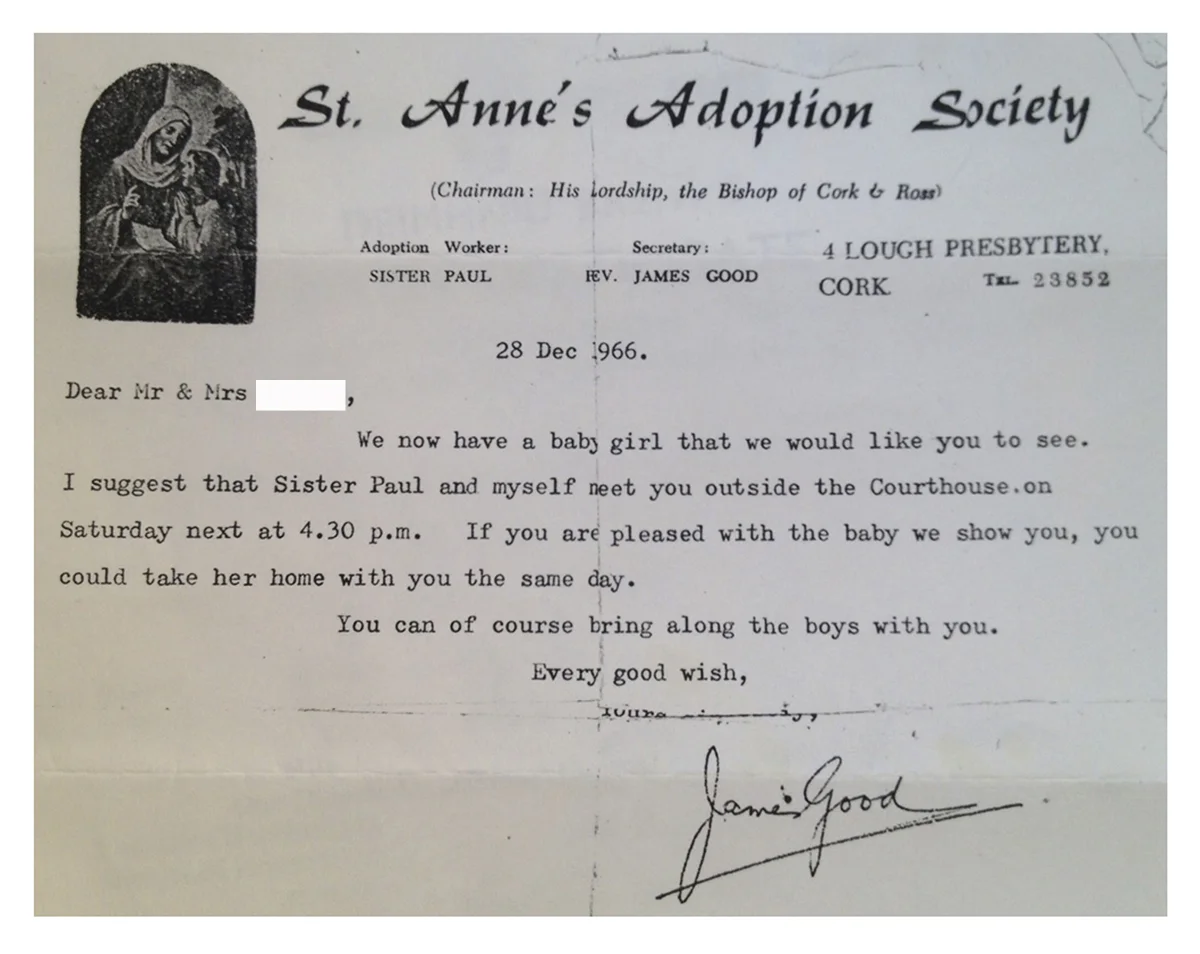 St. Anne's Adoption Society
(Chairman: His Lordship, the Bishop of Cork & Ross)
Adoption Worker: Secretary: 4 LOUGH PRESBYTERY,
SISTER PAUL REV. JAMES GOOD CORK TEL. 23852
28 Dec 1966.
Dear Mr & Mrs ,
We now have a baby girl that we would like you to see.
I suggest that Sister Paul and myself meet you outside the Courthouse.on
Saturday next at 4.30 p.m. If you are pleased with the baby we show you, you
could take her home with you the same day.
You can of course bring along the boys with you.
Every good wish,
James Good